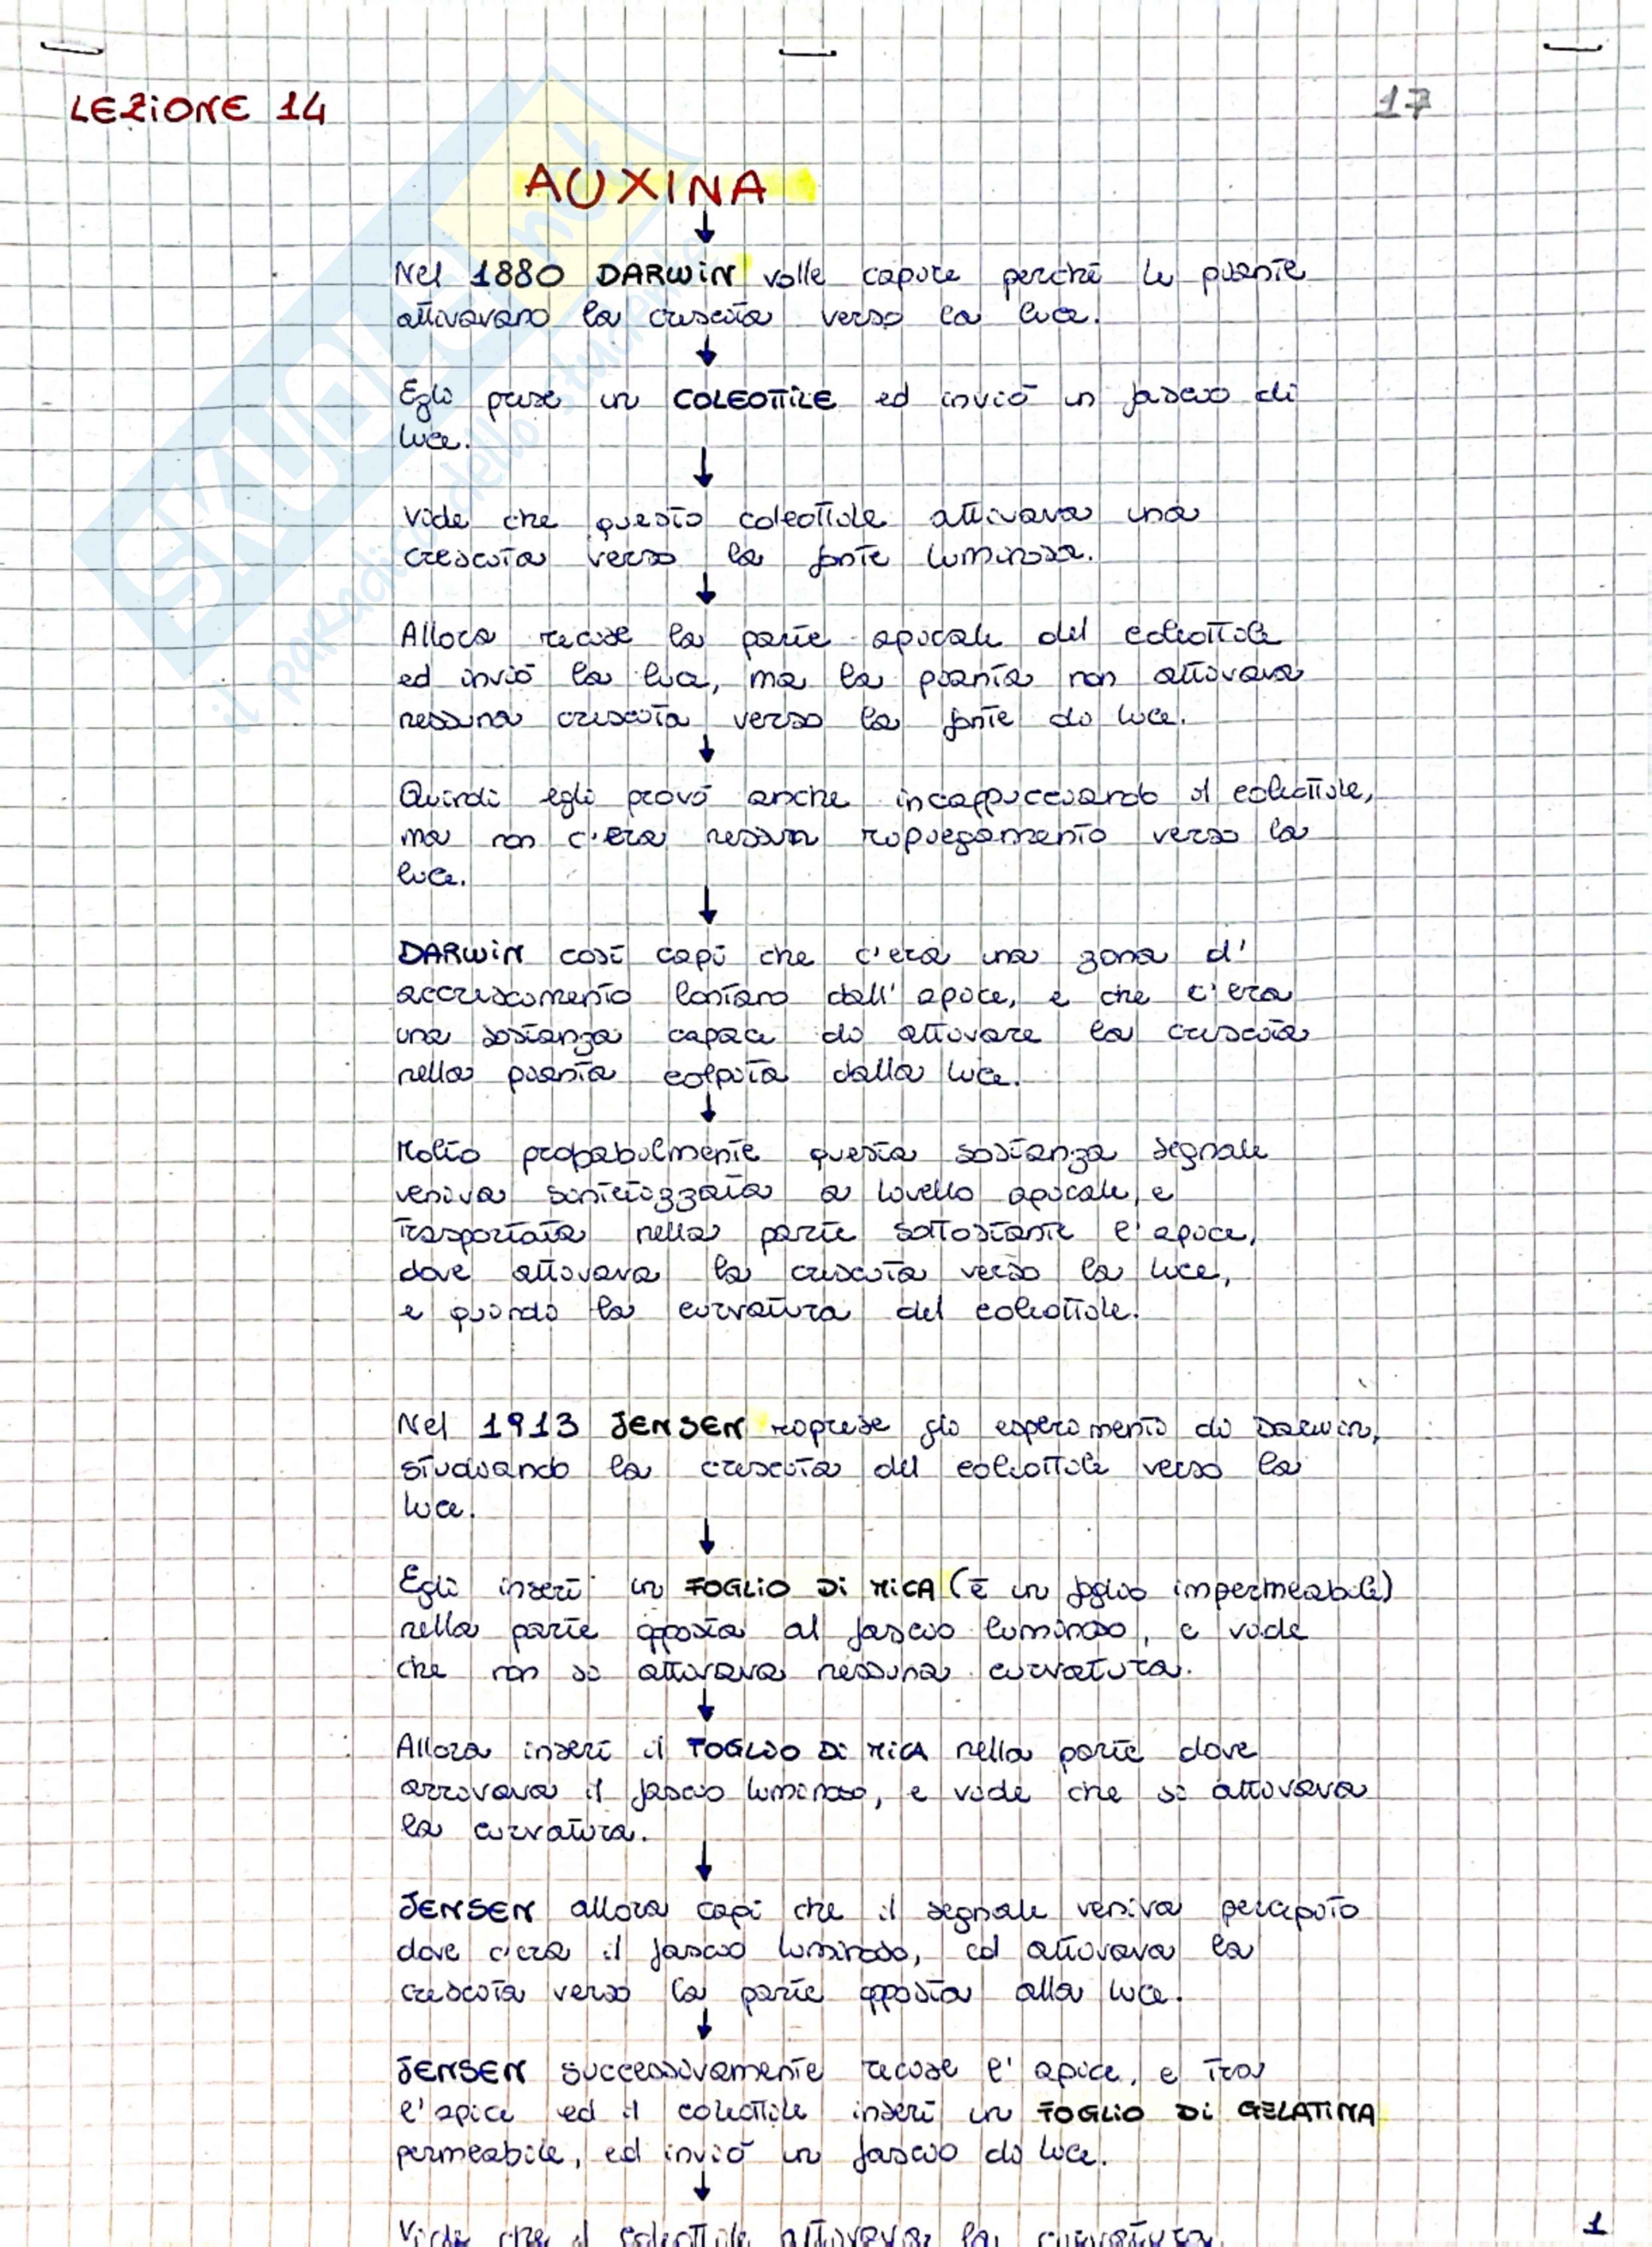 LEZIONE 14
17
AUXINA
Nel 1880 DARWIN volle capire perché le piante
attivavano la crescita verso la luce.
Egli prese un COLEOTTILE ed inviò un fascio di
luce.
Vide che questo coleottile attivava una
crescita verso la fonte luminosa.
Allora recise la parte apicale del coleottile
ed inviò la luce, ma la pianta non attivava
nessuna crescita verso la fonte di luce.
Quindi egli provò anche incappucciando il coleottile,
ma non c'era nessun ripiegamento verso la
luce.
DARWIN così capì che c'era una zona d'
accrescimento lontano dall'apice, e che c'era
una sostanza capace di attivare la crescita
nella pianta colpita dalla luce.
Molto probabilmente questa sostanza segnale
veniva sintetizzata a livello apicale, e
trasportata nella parte sottostante l'apice,
dove attivava la crescita verso la luce,
e quindi la curvatura del coleottile.
Nel 1913 JENSEN riprese gli esperimenti di Darwin,
studiando la crescita del coleottile verso la
luce.
Egli inserì un FOGLIO DI MICA (è un foglio impermeabile)
nella parte opposta al fascio luminoso, e vide
che non si attivava nessuna curvatura.
Allora inserì il FOGLIO DI MICA nella parte dove
arrivava il fascio luminoso, e vide che si attivava
la curvatura.
JENSEN allora capì che il segnale veniva percepito
dove c'era il fascio luminoso, ed attivava la
crescita verso la parte opposta alla luce.
JENSEN successivamente recise l'apice, e tra
l'apice ed il coleottile inserì un FOGLIO DI GELATINA
permeabile, ed inviò un fascio di luce.
Vide che il coleottile attivava la curvatura
1
SKUOLA.net
il paradiso dello studente